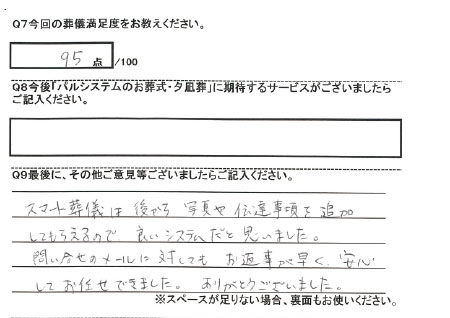 Q7今回の葬儀満足度をお教えください。
95 点 /100
Q8今後「パルシステムのお葬式・夕凪葬」に期待するサービスがございましたら
ご記入ください。
Q9最後に、その他ご意見等ございましたらご記入ください。
スマート葬儀は後から写真や伝達事項を追加
してもらえるので、良いシステムだと思いました。
問い合せのメールに対しても お返事が早く、安心
してお任せできました。ありがとうございました。
※スペースが足りない場合、裏面もお使いください。